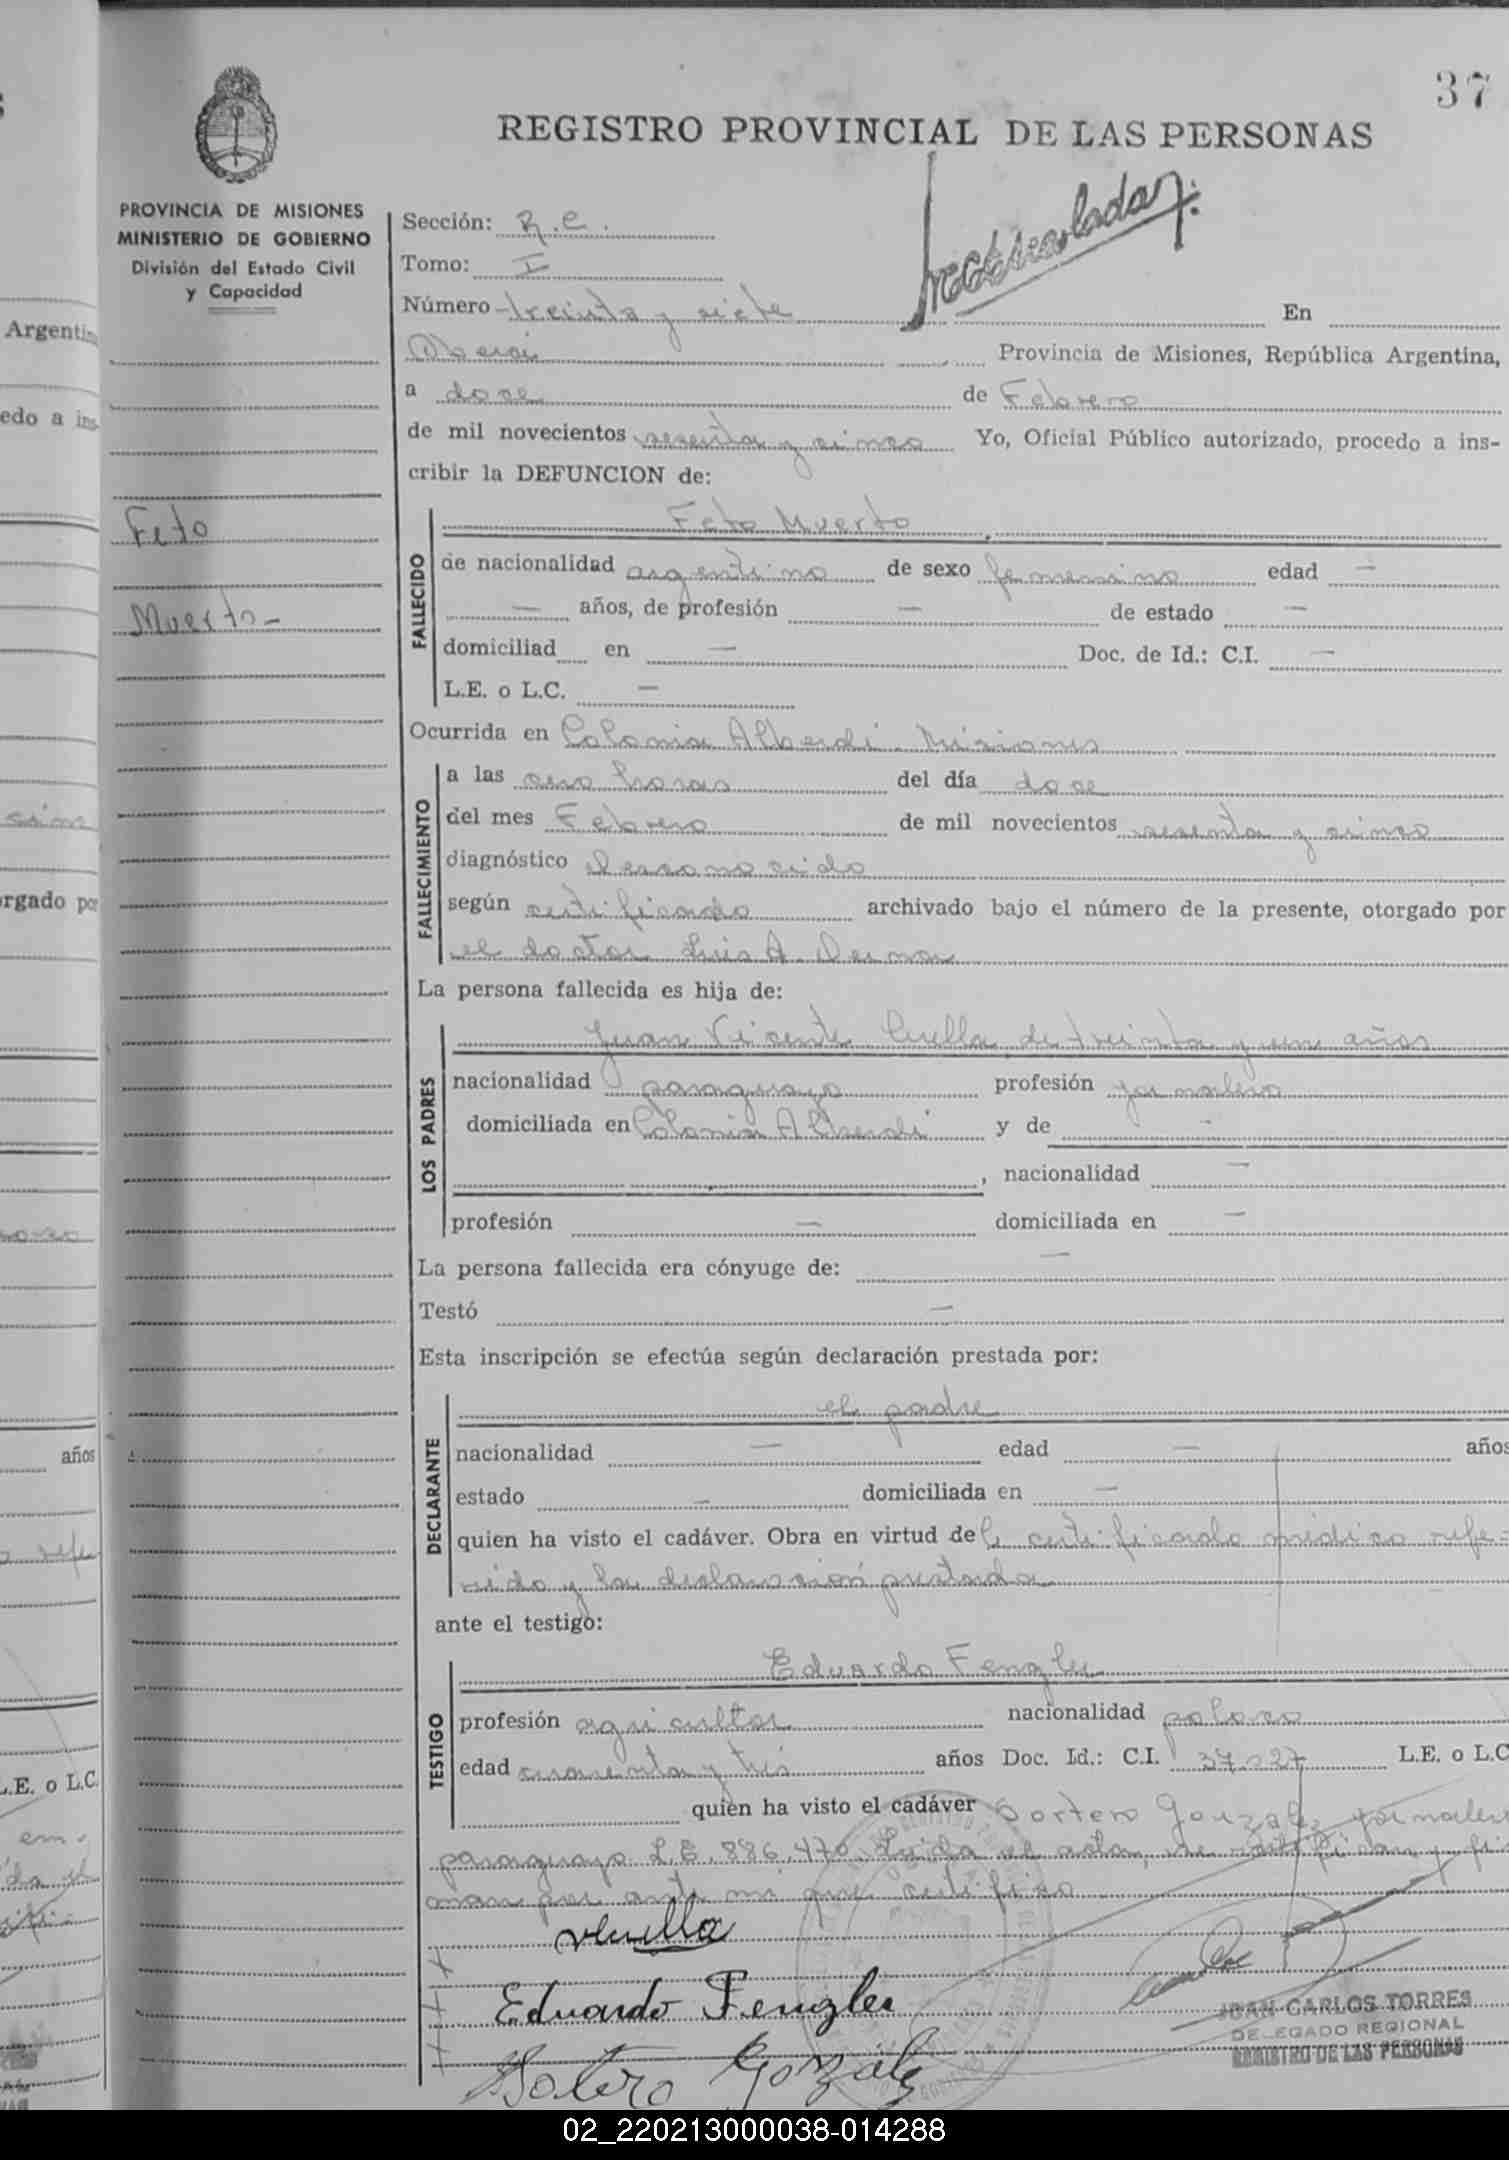 37
REGISTRO PROVINCIAL DE LAS PERSONAS
PROVINCIA DE MISIONES
MINISTERIO DE GOBIERNO
División del Estado Civil
y Capacidad
Feto
Muerto-
Sección: R.C.
Tomo: I
Número treinta y siete En
Oberá Provincia de Misiones, República Argentina,
a doce de Febrero
de mil novecientos sesenta y cinco Yo, Oficial Público autorizado, procedo a ins-
cribir la DEFUNCION de:
FALLECIDO
Feto Muerto
de nacionalidad argentino de sexo femenino edad —
— años, de profesión — de estado —
domiciliad en — Doc. de Id.: C.I. —
L.E. o L.C. —
Ocurrida en Colonia Alberdi. Misiones
FALLECIMIENTO
a las cero horas del día doce
del mes Febrero de mil novecientos sesenta y cinco
diagnóstico desconocido
según certificado archivado bajo el número de la presente, otorgado por
el doctor Luis A.
La persona fallecida es hija de:
LOS PADRES
Juan Vicente de treinta y un años
nacionalidad paraguayo profesión jornalero
domiciliada en Colonia Alberdi y de -
, nacionalidad —
profesión — domiciliada en —
La persona fallecida era cónyuge de: —
Testó —
Esta inscripción se efectúa según declaración prestada por:
DECLARANTE
el padre
nacionalidad — edad — años
estado — domiciliada en —
quien ha visto el cadáver. Obra en virtud de certificado médico refe-
rido y la declaración prestada
ante el testigo:
TESTIGO
Eduardo Fengler
profesión agricultor nacionalidad polaco
edad cincuenta y tres años Doc. Id.: C.I. 37.227 L.E. o L.C
quien ha visto el cadáver Gonzalez jornalero
paraguayo L.E. 886.470. Leída el acta, se ratifican y fir
man por ante mi que certifico
Eduardo Fengler
Sotero Gonzalez
JUAN CARLOS TORRES
DELEGADO REGIONAL
REGISTRO DE LAS PERSONAS
02_220213000038-014288